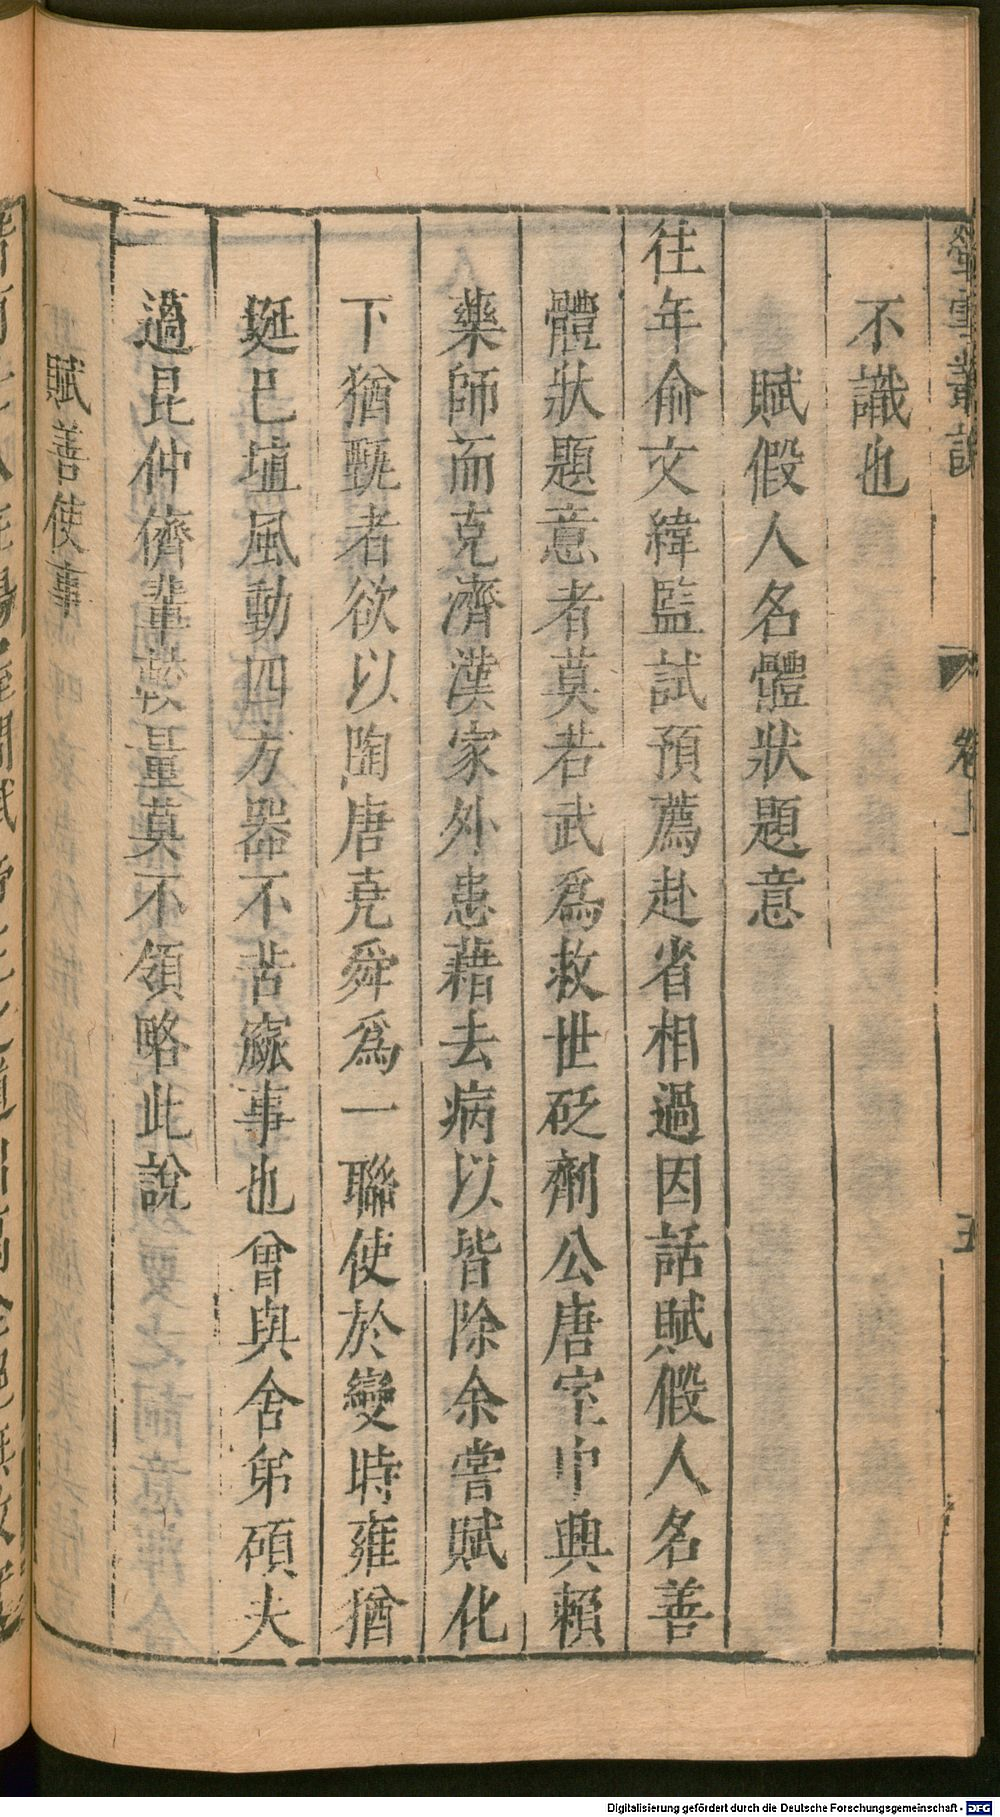 螢雪叢說 卷上 五
不識也
賦假人名體狀題意
往年俞文緯監試預薦赴省相過因話賦假人名善
體狀題意者莫若武爲救世砭劑公唐室中興賴
藥師而克濟漢家外患藉去病以皆除余嘗賦化
下猶甄者欲以陶唐堯舜爲一聯使於變時雍猶
埏巳埴風動四方器不苦窳事也曾與舍弟碩夫
過昆仲儕輩較量莫不領略此說
賦善使事
Digitalisierung gefördert durch die Deutsche Forschungsgemeinschaft - DFG